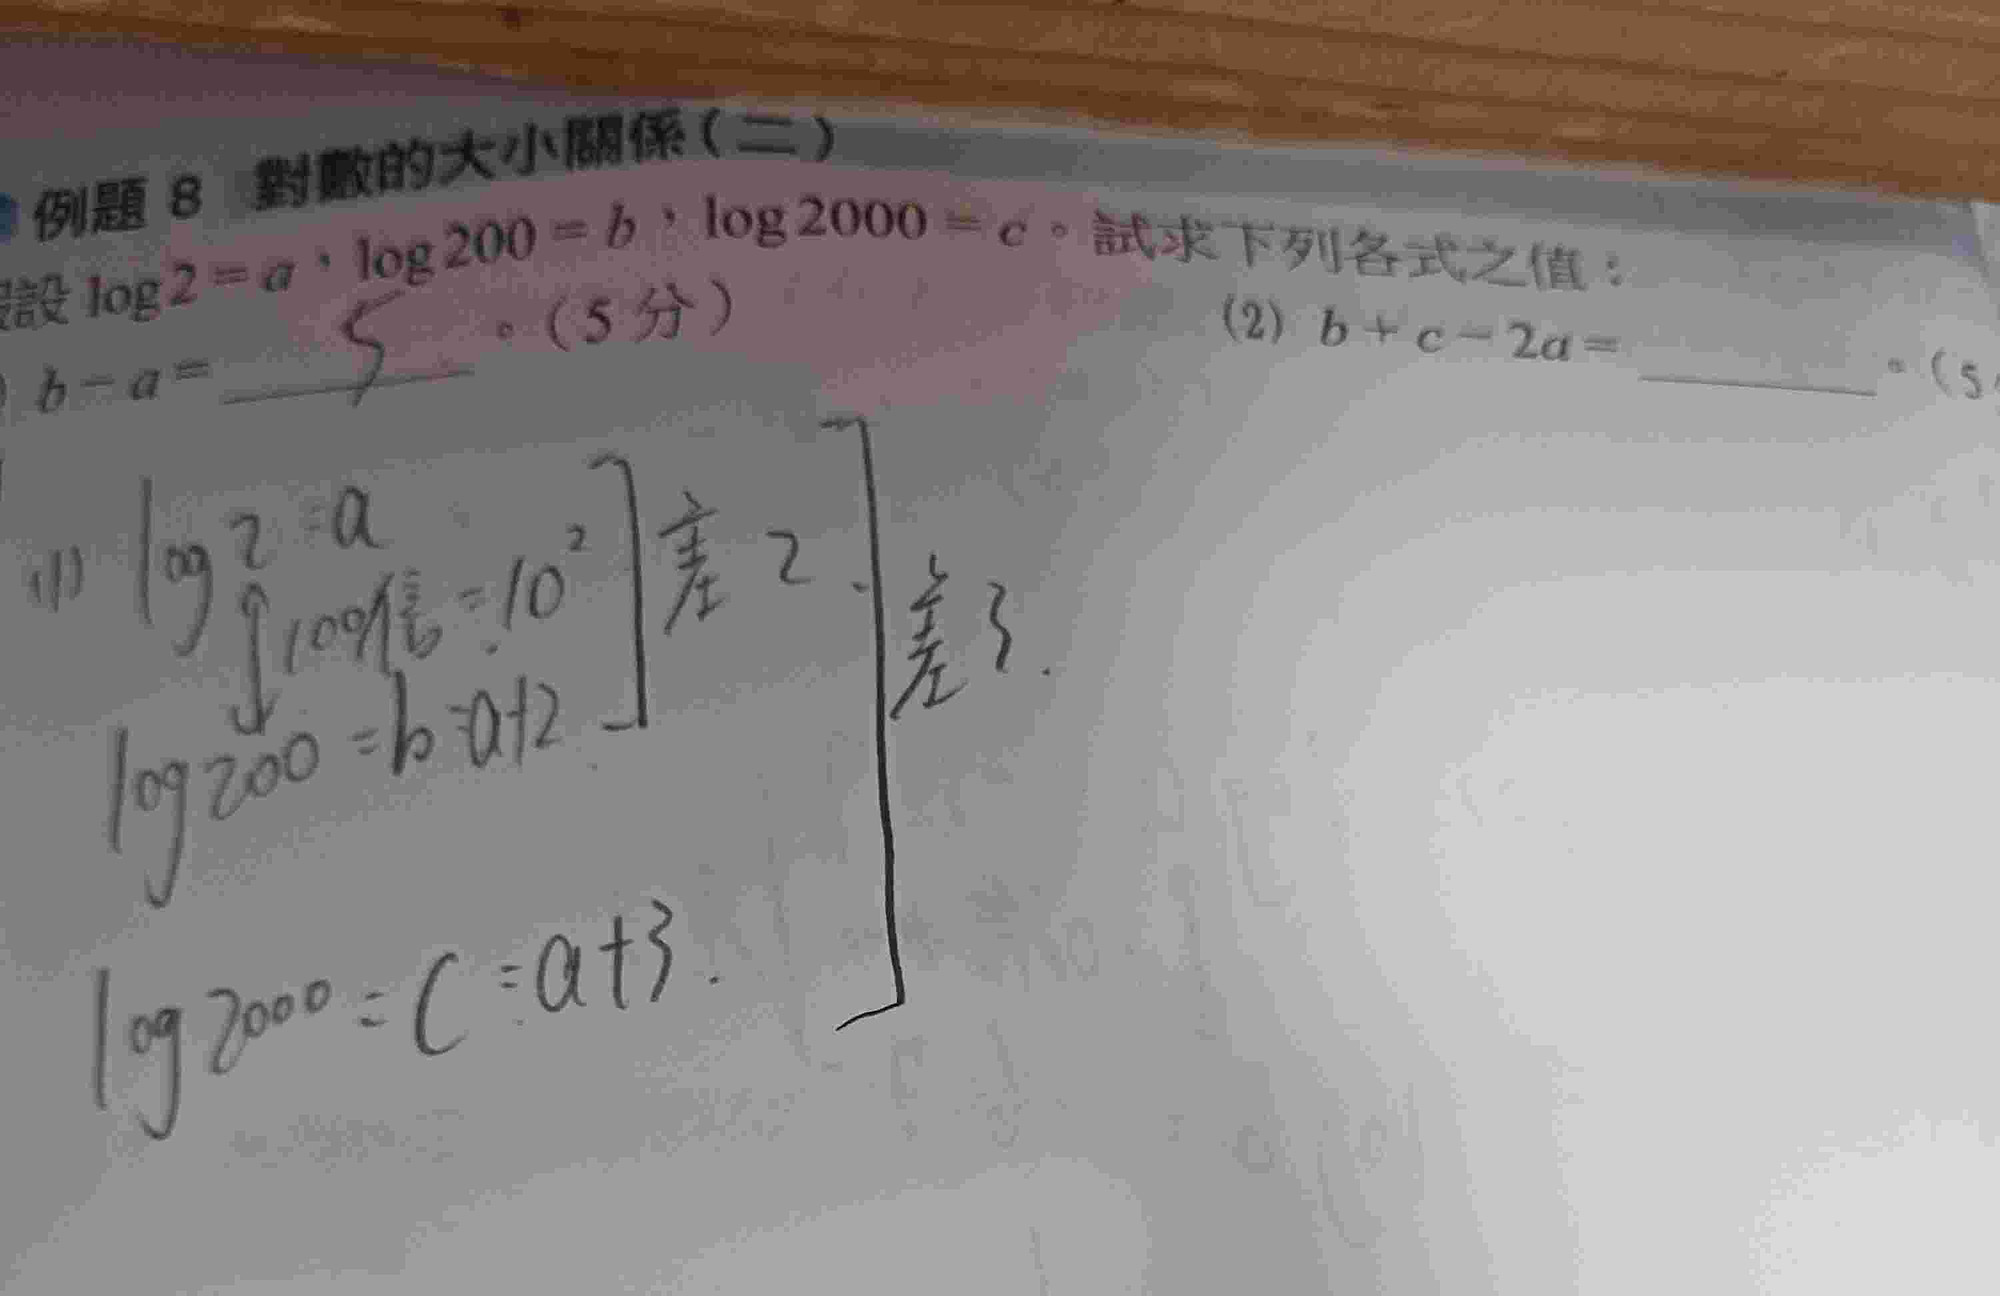 例題 8 對數的大小關係(二)
設 log 2 = a，log 200 = b，log 2000 = c。試求下列各式之值：
b − a = 5 。(5 分)
(2) b + c − 2a = 。(5
(1) log 2 = a
100倍 = 10²
差 2
log 200 = b = a+2
差 3
log 2000 = c = a+3